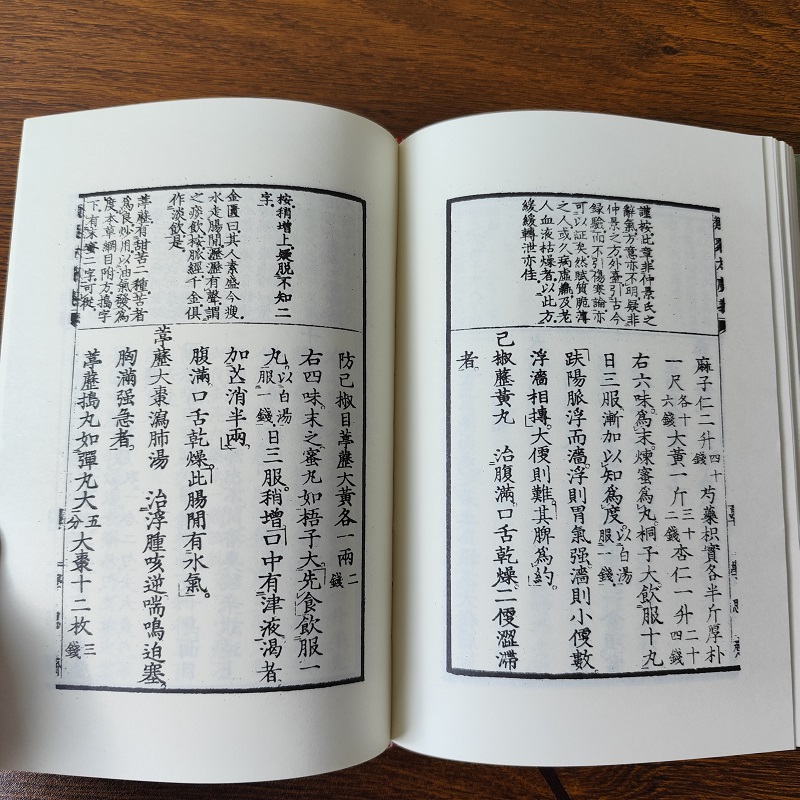 謹按此章非仲景氏之
辭氣方意亦不明疑非
仲景之方外臺引古今
録驗而不引傷寒論亦
可以証矣然賦質脆薄
之人或久病虛羸及老
人血液枯燥者以此方
緩緩轉泄亦佳
麻子仁二升四十錢芍藥枳實各半斤厚朴
一尺各十六錢大黃一斤三十二錢杏仁一升二十四錢
右六味爲末煉蜜爲丸桐子大飲服十丸
日三服漸加以知爲度以白湯服一錢
趺陽脈浮而濇浮則胃氣强濇則小便數
浮濇相摶大便則難其脾爲約
己椒藶黃丸 治腹滿口舌乾燥二便澀滯
者
按稍增上疑脫不知二
字
金匱曰其人素盛今瘦
水走腸間瀝瀝有聲謂
之痰飲按脈經千金俱
作淡飲是
葶藶有甜苦二種苦者
爲良炒用以油氣發爲
度本草綱目附方搗字
下有末蜜二字可從
防己椒目葶藶大黃各一兩二錢
右四味末之蜜丸如梧子大先食飲服一
丸以白湯服一錢日三服稍增口中有津液渴者
加芒消半兩
腹滿口舌乾燥此腸間有水氣
葶藶大棗瀉肺湯 治浮腫咳逆喘鳴迫塞
胸滿强急者
葶藶搗丸如彈丸大五分大棗十二枚三錢